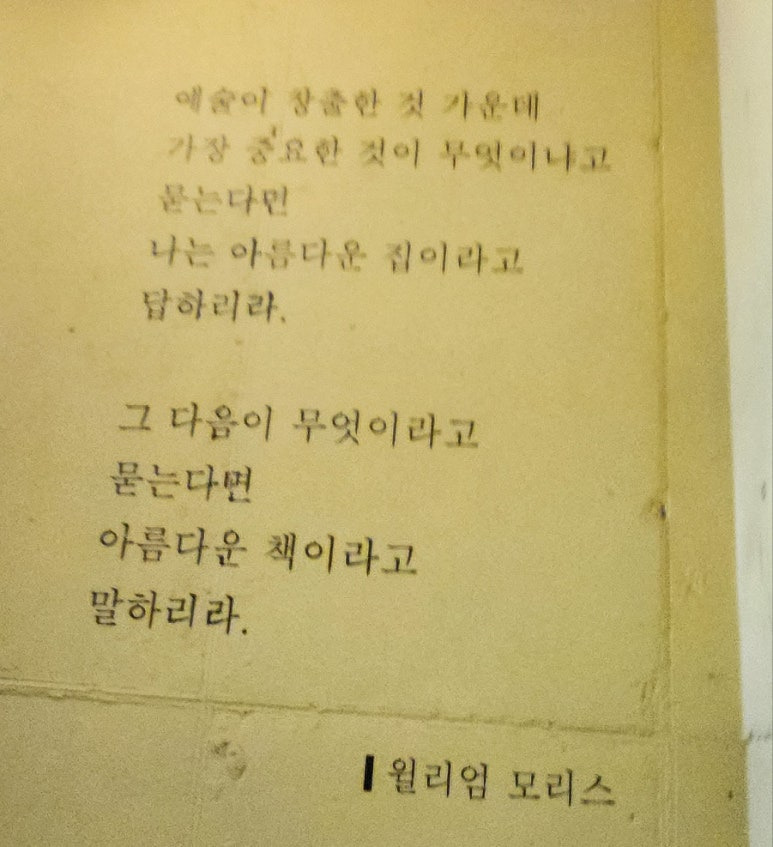 예술이 창출한 것 가운데
가장 중요한 것이 무엇이냐고
묻는다면
나는 아름다운 집이라고
답하리라.
그 다음이 무엇이라고
묻는다면
아름다운 책이라고
말하리라.
윌리엄 모리스